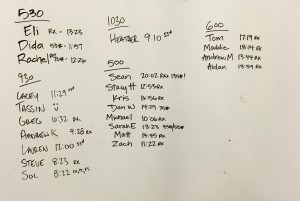 530
Eli RX - 13:23
Dida 53# - 11:57
Rachel 70# - 12:26
930
LACEY 11:29
TASSIN
GREG 10:32 RX
ANDREW K 9:28 RX
LAUREN 12:00
STEVE 8:23 RX
SOL 8:22
1030
HEATHER 9:10
500
Sean 20:02 RX+
Stacy H 12:55 RX
Kris 16:56 RX
Dan W 14:29 70#
Michael 10:06 RX
Sarah E 13:23
Matt 14:45 RX
Zach 11:22 RX
600
Tom 17:19 RX
Maddie 18:24 RX
Andrew M 13:44 RX
Aidan 13:59 RX